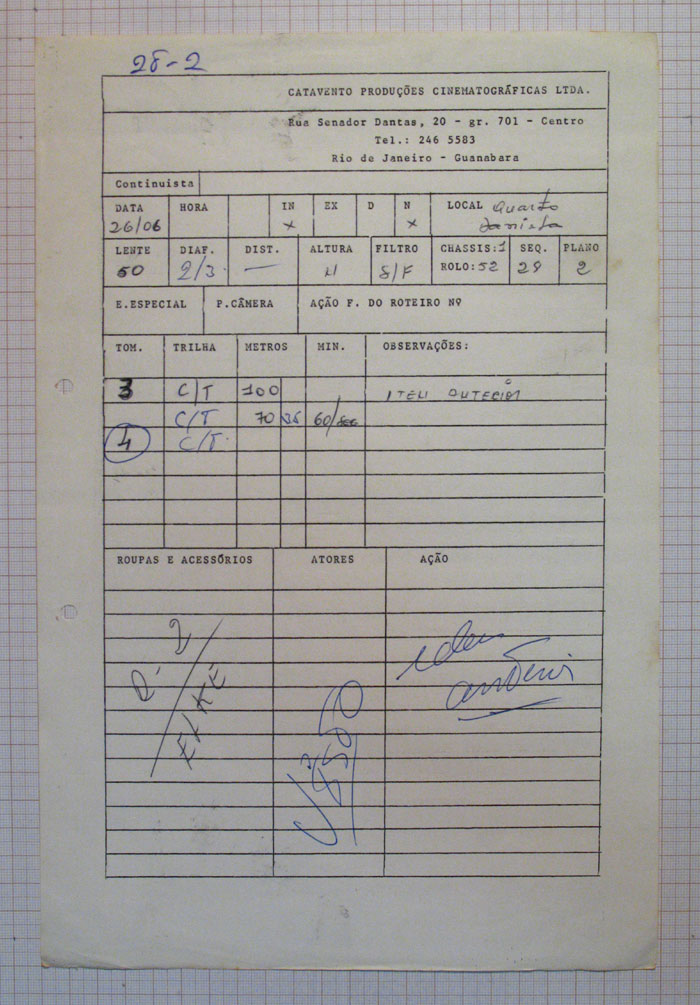 28-2
CATAVENTO PRODUÇÕES CINEMATOGRÁFICAS LTDA.
Rua Senador Dantas, 20 - gr. 701 - Centro
Tel.: 246 5583
Rio de Janeiro - Guanabara
Continuista
DATA HORA IN EX D N LOCAL Quarto
26/06 x x Daniela
LENTE DIAF. DIST. ALTURA FILTRO CHASSIS: 1 SEQ. PLANO
50 2/3 — N S/F ROLO: 52 28 2
E.ESPECIAL P.CÂMERA AÇÃO F. DO ROTEIRO Nº
TOM. TRILHA METROS MIN. OBSERVAÇÕES:
3 C/T 100
C/T 70 60/
4 C/T.
ROUPAS E ACESSÓRIOS ATORES AÇÃO
R. 2
idem